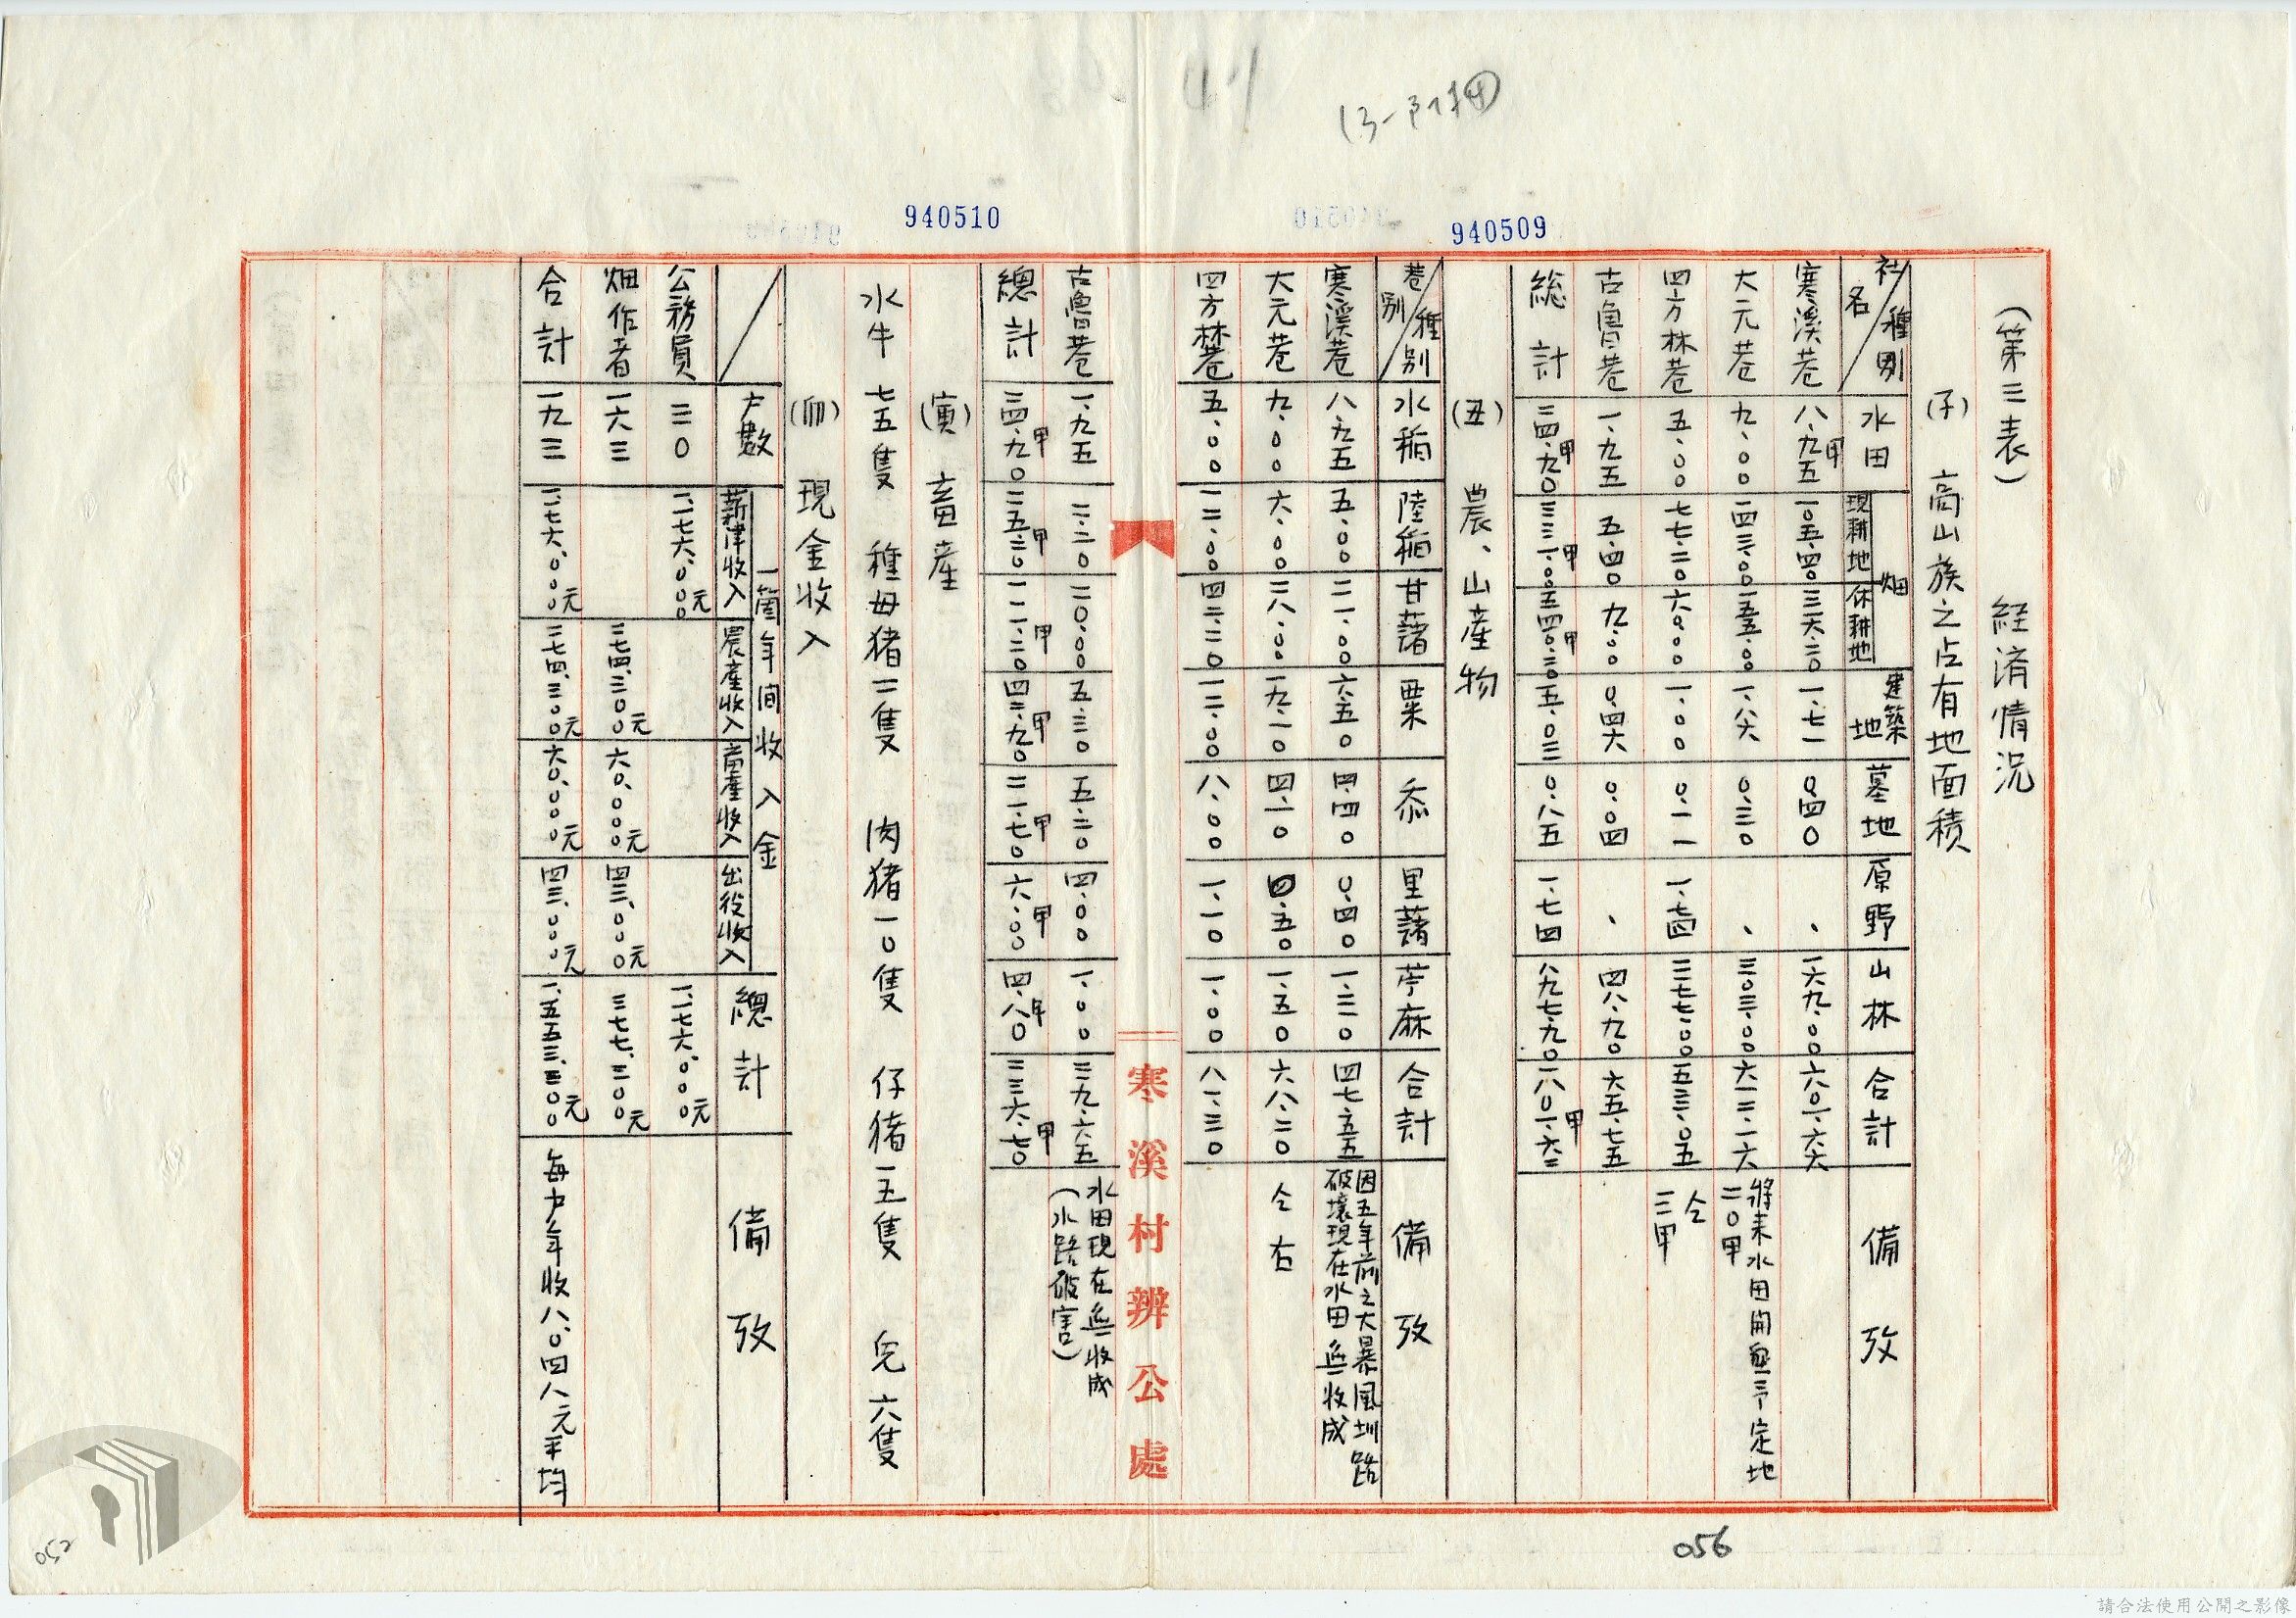 13-附件④
940509
940510
(第三表)　経済情況
(子)　高山族之占有地面積
社名／種別　水田　畑　現耕地　休耕地　建築地　墓地　原野　山林　合計　備攷
寒溪巷　八.九五甲　一〇五.四〇　三一六.二〇　一.七一　〇.四〇　、　一六九.〇〇　六〇一.六六
大元巷　九.〇〇　一四三.〇〇　一五五.〇〇　一.八六　〇.三〇　、　三〇三.〇〇　六一二.一六　將来水田開墾予定地二〇甲
四方林巷　五.〇〇　七七.二〇　六〇.〇〇　一.〇〇　〇.一一　一.七四　三七七.〇〇　五二二.〇五　仝　三甲
古魯巷　一.九五　五.四〇　九.〇〇　〇.四六　〇.〇四　、　四八.九〇　六五.七五
総計　二四.九〇甲　三三一.〇〇甲　五四〇.二〇甲　五.〇三　〇.八五　一.七四　八九七.九〇　一八〇一.六二甲
(丑)　農、山產物
巷別／種別　水稻　陸稻　甘藷　粟　黍　里藷　苧麻　合計　備攷
寒溪巷　八.九五　五.〇〇　二一.〇〇　六.五〇　四.四〇　〇.四〇　一.三〇　四七.五五　因五年前之大暴風圳路破壞現在水田無收成
大元巷　九.〇〇　六.〇〇　二八.〇〇　一九.一〇　四.一〇　四.五〇　一.五〇　六八.二〇　仝右
四方林巷　五.〇〇　一二.〇〇　四二.二〇　一二.〇〇　八.〇〇　一.一〇　一.〇〇　八一.三〇
寒溪村辦公處
古魯巷　一.九五　二.二〇　二〇.〇〇　五.三〇　五.二〇　四.〇〇　一.〇〇　三九.六五　水田現在無收成(水路破害)
總計　二四.九〇甲　二五.二〇甲　一一一.二〇甲　四二.九〇甲　二一.七〇甲　六.〇〇甲　四.八〇甲　二三六.七〇甲
(寅)　畜產
水牛七五隻　種母猪二隻　肉猪一〇隻　仔猪一五隻　兎六隻
(卯)　現金收入
戶數　一箇年间收入金　薪津收入　農產收入　畜產收入　出役收入　總計　備攷
公務員　三〇　一、一七六、〇〇〇元　一、一七六、〇〇〇元
畑作者　一六三　二七四、三〇〇元　六〇、〇〇〇元　四三、〇〇〇元　三七七、三〇〇元
合計　一九三　一、一七六、〇〇〇元　二七四、三〇〇元　六〇、〇〇〇元　四三、〇〇〇元　一、五五三、三〇〇元　每戶年收八、〇四八元平均
056
052
請合法使用公開之影像